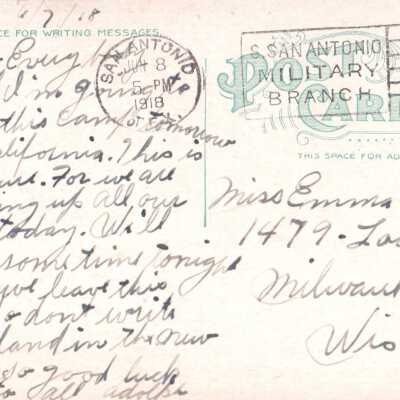 6/7/18
CE FOR WRITING MESSAGES.
SAN ANTONIO
8
5-PM
1918
TEX.
S. SAN ANTONIO
MILITARY
BRANCH
POST
CARD
THIS SPACE FOR AD
I'm going
this Camp tomorrow
alifornia. This is
ure. For we are
ing up all our
today. Will
sometime tonigh
we leave this
o dont write
land in the new
so good luck
to all adolph
Miss Emma
1479-
Milwau
Wis